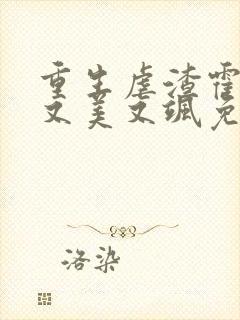 重生虐渣霍
又美又飒免
洛染